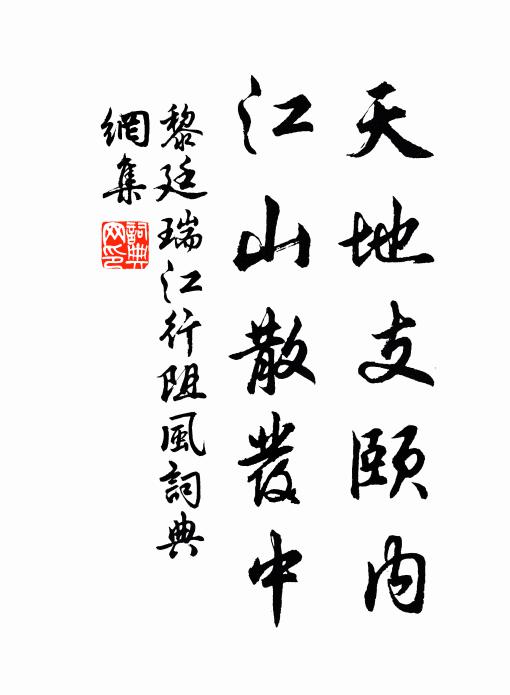 天地支頤內
江山散叢中
黎廷瑞江行阻風詞典
網集
詞典
网印